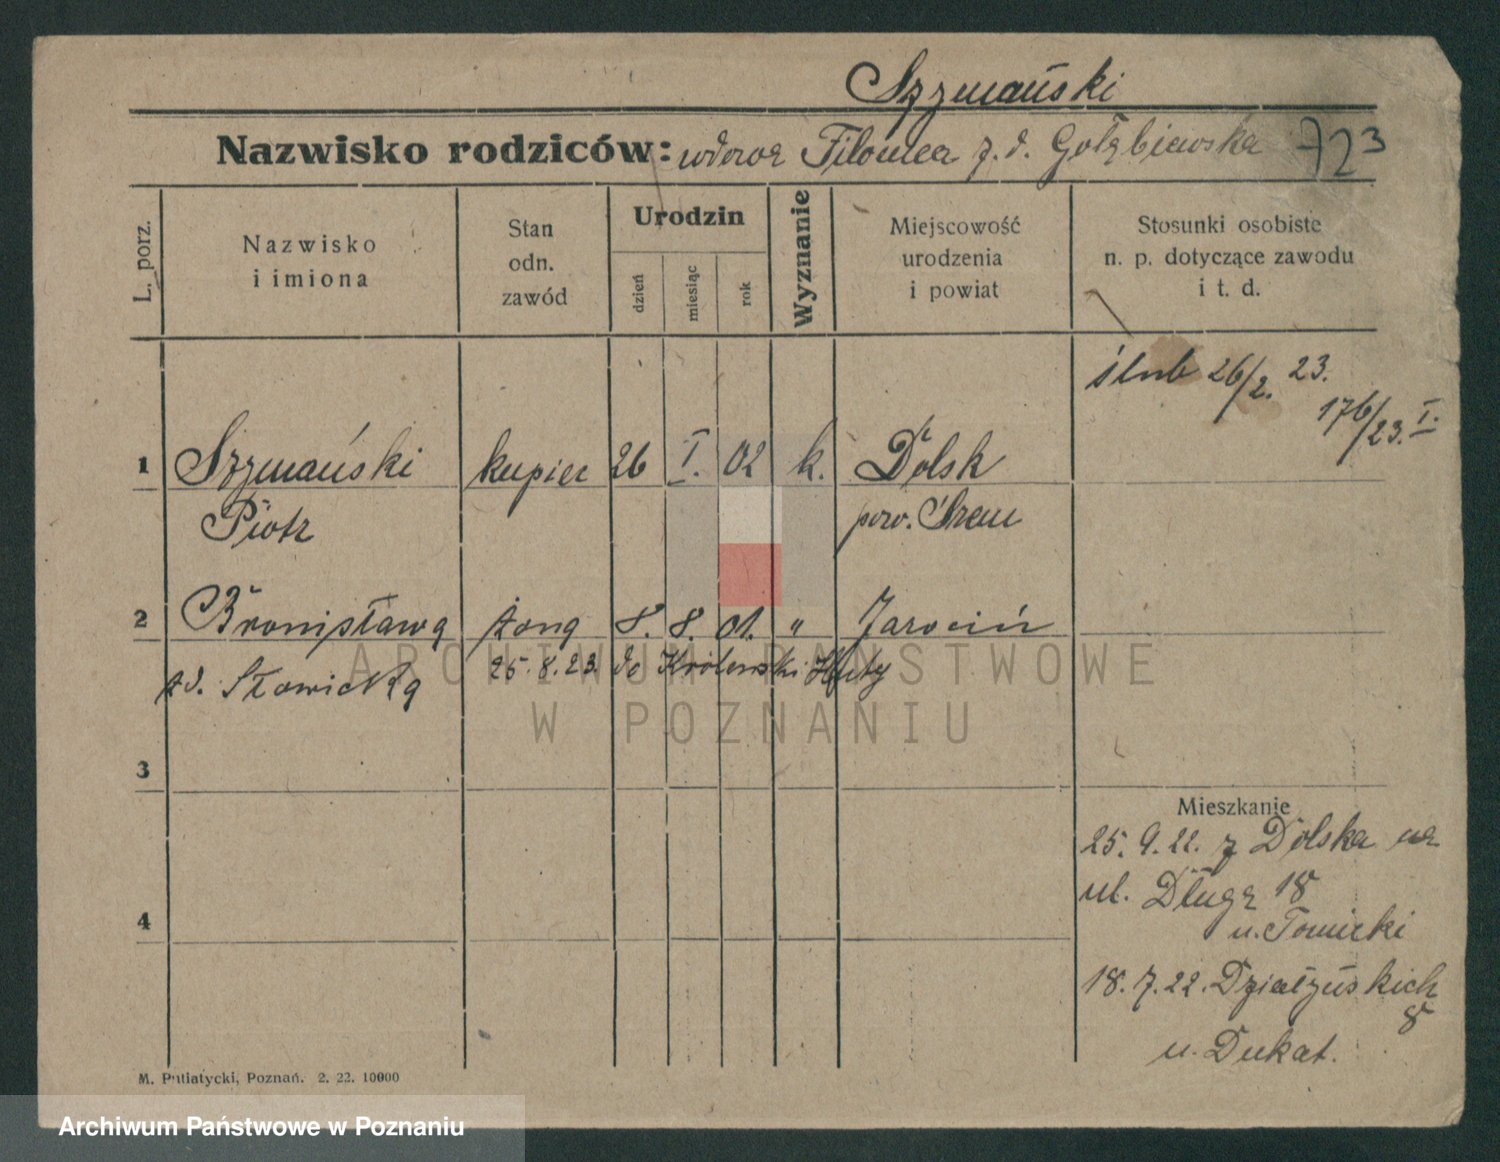 Szymański
Nazwisko rodziców: wdowa Filomea z. d. Gołębiewska 723
L. porz.
Nazwisko i imiona
Stan odn. zawód
Urodzin
dzień
miesiąc
rok
Wyznanie
Miejscowość urodzenia i powiat
Stosunki osobiste n. p. dotyczące zawodu i t. d.
ślub 26/2. 23.
176/23. I.
1 Szymański kupiec 26 I. 02 k. Dolsk
Piotr pow. Śrem
2 Bronisława żona 8. 8. 01. " Jarocin
zd. Sławicka 25.8.23. do Królewski Huty
3
Mieszkanie
25. 9. 22. z Dolska na
ul. Długą 18
u. Tomicki
4
18. 7. 22. Działyńskich
8
u. Dukat.
M. Putiatycki, Poznań. 2. 22. 10000
ARCHIWUM PAŃSTWOWE
W POZNANIU
Archiwum Państwowe w Poznaniu